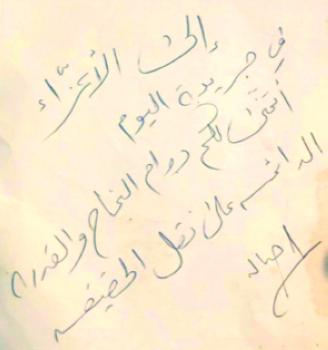 إلى الأعزاء
في جريدة اليوم
أتمنى لكم دوام النجاح والقدرة
الدائمة على نقل الحقيقة